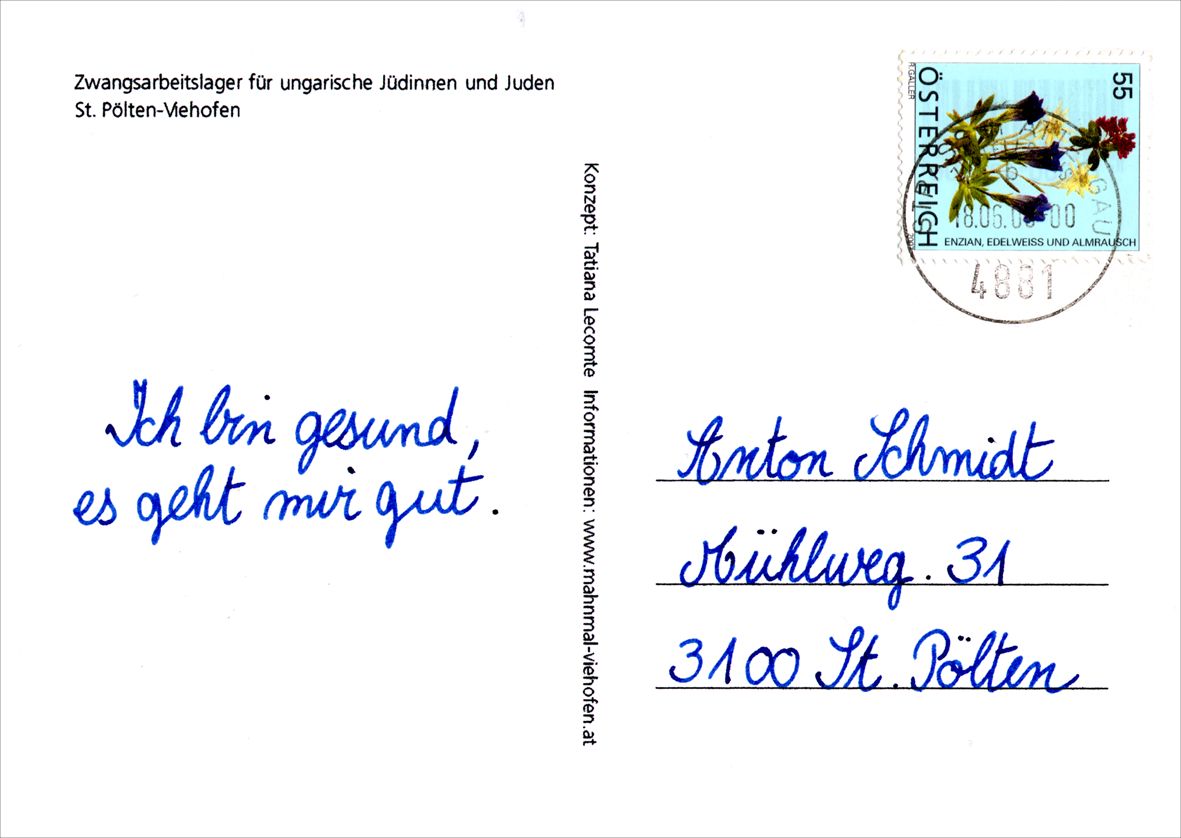 Zwangsarbeitslager für ungarische Jüdinnen und Juden
St. Pölten-Viehofen
Ich bin gesund,
es geht mir gut.
Konzept: Tatiana Lecomte Informationen: www.mahnmal-viehofen.at
55
ÖSTERREICH
ENZIAN, EDELWEISS UND ALMRAUSCH
GAU
4881
Anton Schmidt
Mühlweg. 31
3100 St. Pölten